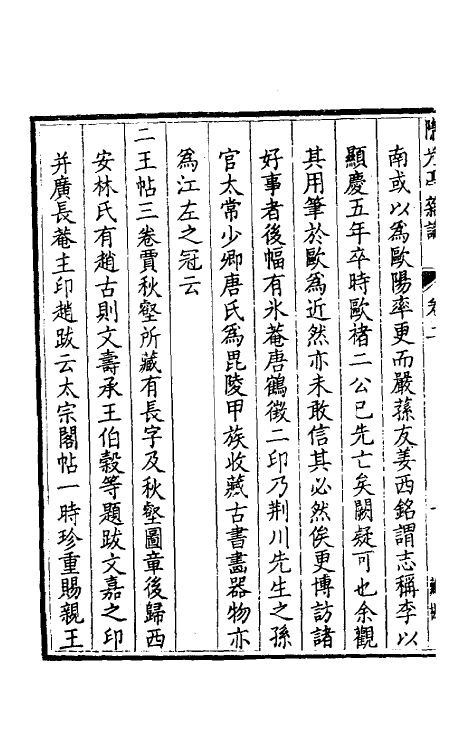 南或以為歐陽率更而嚴蓀友姜西銘謂志稱李以
顯慶五年卒時歐褚二公已先亡矣闕疑可也余觀
其用筆於歐為近然亦未敢信其必然俟更博訪諸
好事者後幅有氷菴唐鶴徵二印乃荆川先生之孫
官太常少卿唐氏為毘陵甲族收藏古書畵器物亦
為江左之冠云
二王帖三卷賈秋壑所藏有長字及秋壑圖章後歸西
安林氏有趙古則文壽承王伯穀等題跋文嘉之印
并廣長菴主印趙跋云太宗閣帖一時珍重賜親王